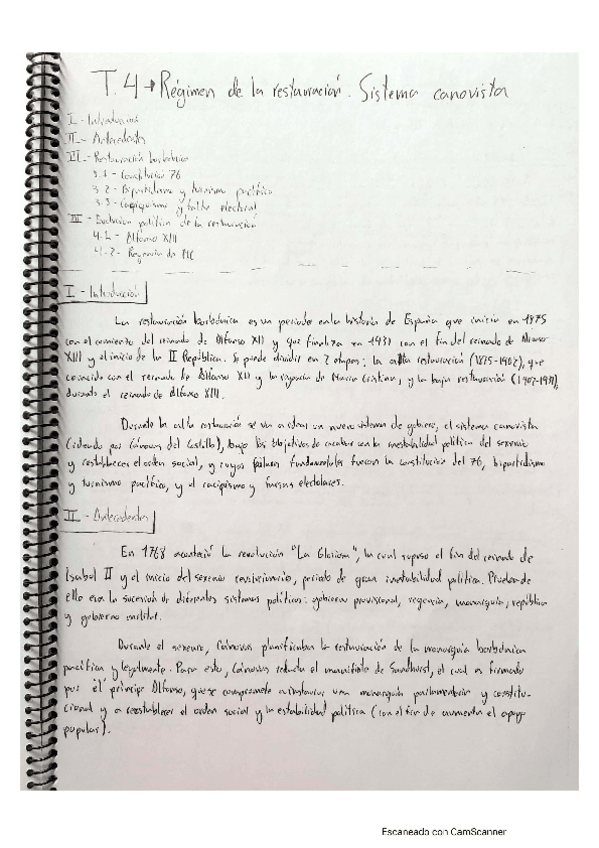 T.4 → Régimen de la restauración. Sistema canovista
I - Introducción
II - Antecedentes
III - Restauración borbónica
3.1 - Constitución 76
3.2 - Bipartidismo y turnismo pacífico
3.3 - Caciquismo y falta electoral
IV - Evolución política de la restauración
4.1 - Alfonso XII
4.2 - Regencia de MC
I - Introducción
La restauración borbónica es un periodo en la historia de España que inicia en 1875
con el comienzo del reinado de Alfonso XII y que finaliza en 1931 con el fin del reinado de Alfonso
XIII y el inicio de la II República. Se puede dividir en 2 etapas: la alta restauración (1875-1902), que
coincidió con el reinado de Alfonso XII y la regencia de María Cristina, y la baja restauración (1902-1931),
durante el reinado de Alfonso XIII.
Durante la alta restauración se va a crear un nuevo sistema de gobierno, el sistema canovista
(ideado por Cánovas del Castillo), bajo los objetivos de acabar con la inestabilidad política del sexenio
y restablecer el orden social, y cuyos pilares fundamentales fueron la constitución del 76, bipartidismo
y turnismo pacífico, y el caciquismo y fraudes electorales.
II - Antecedentes
En 1768 aconteció la revolución "La Gloriosa", la cual supuso el fin del reinado de
Isabel II y el inicio del sexenio revolucionario, periodo de gran inestabilidad política. Prueba de
ello era la sucesión de diferentes sistemas políticos: gobierno provisional, regencia, monarquía, república
y gobierno militar.
Durante el sexenio, Cánovas planificaba la restauración de la monarquía borbónica
pacífica y legalmente. Para esto, Cánovas redacta el manifiesto de Sandhurst, el cual es firmado
por el príncipe Alfonso, que se compromete a instaurar una monarquía parlamentaria y constitu-
cional y a reestablecer el orden social y la estabilidad política (con el fin de aumentar el apoyo
popular).
Escaneado con CamScanner